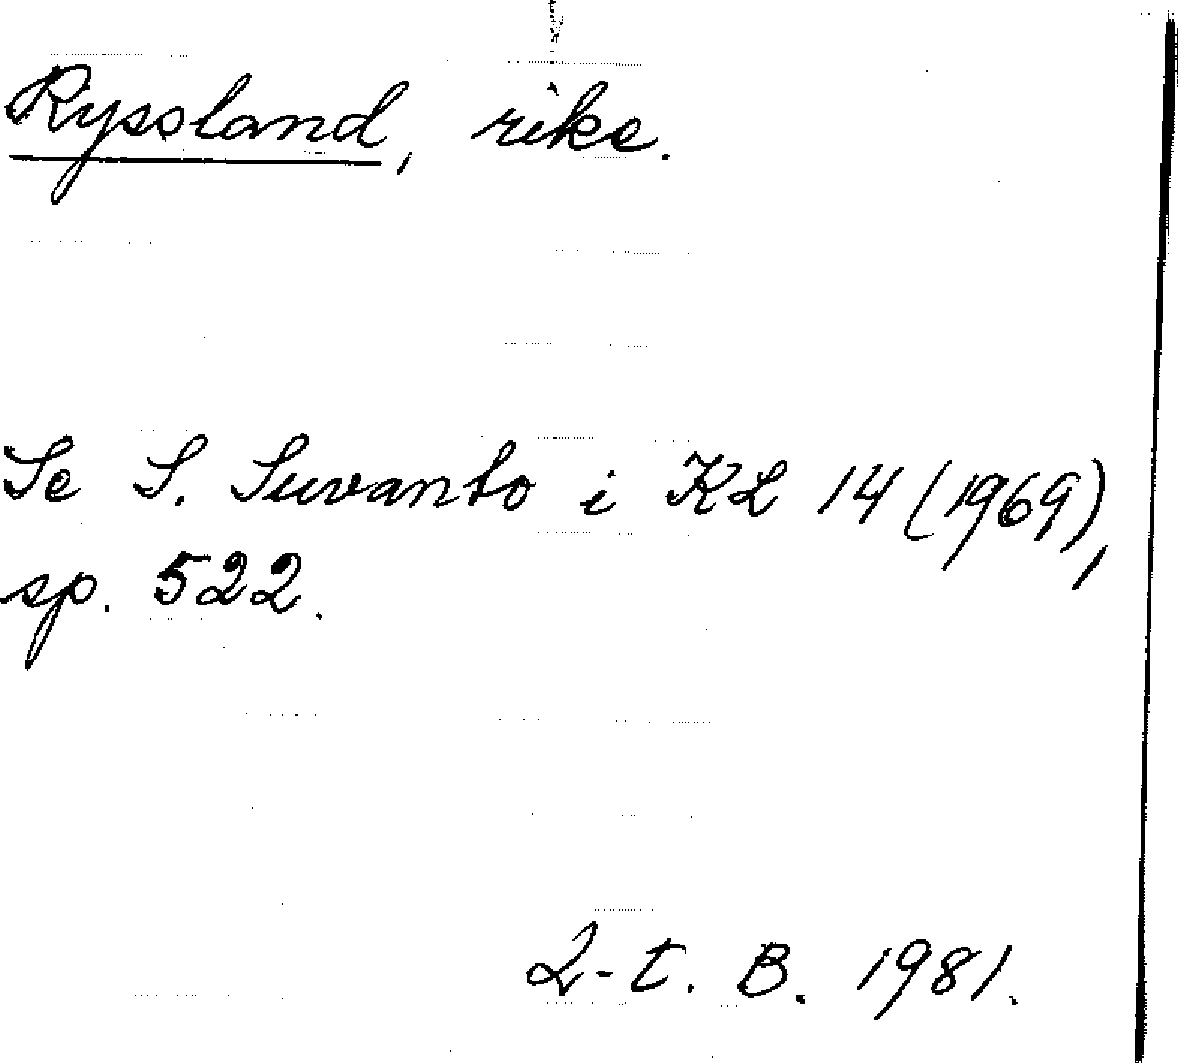 Ryssland, rike.
Se S. Suvanto i KL 14 (1969),
sp. 522.
L-t. B. 1981.